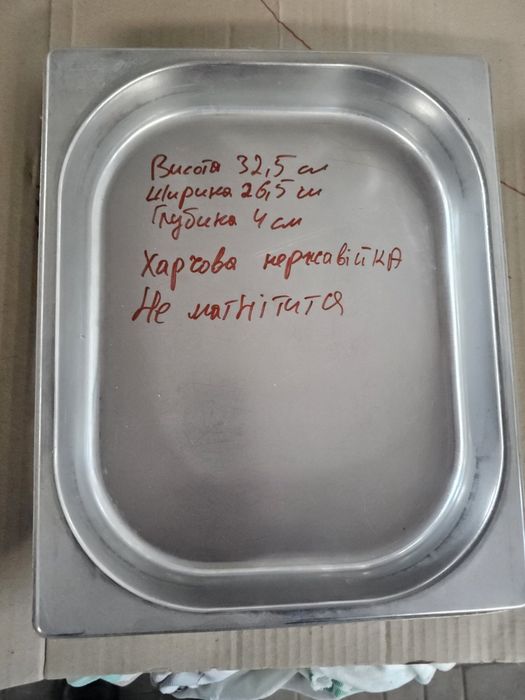 Висота 32,5 см
Ширина 26,5 см
Глубина 4 см
Харчова нержавійка
Не магнітится